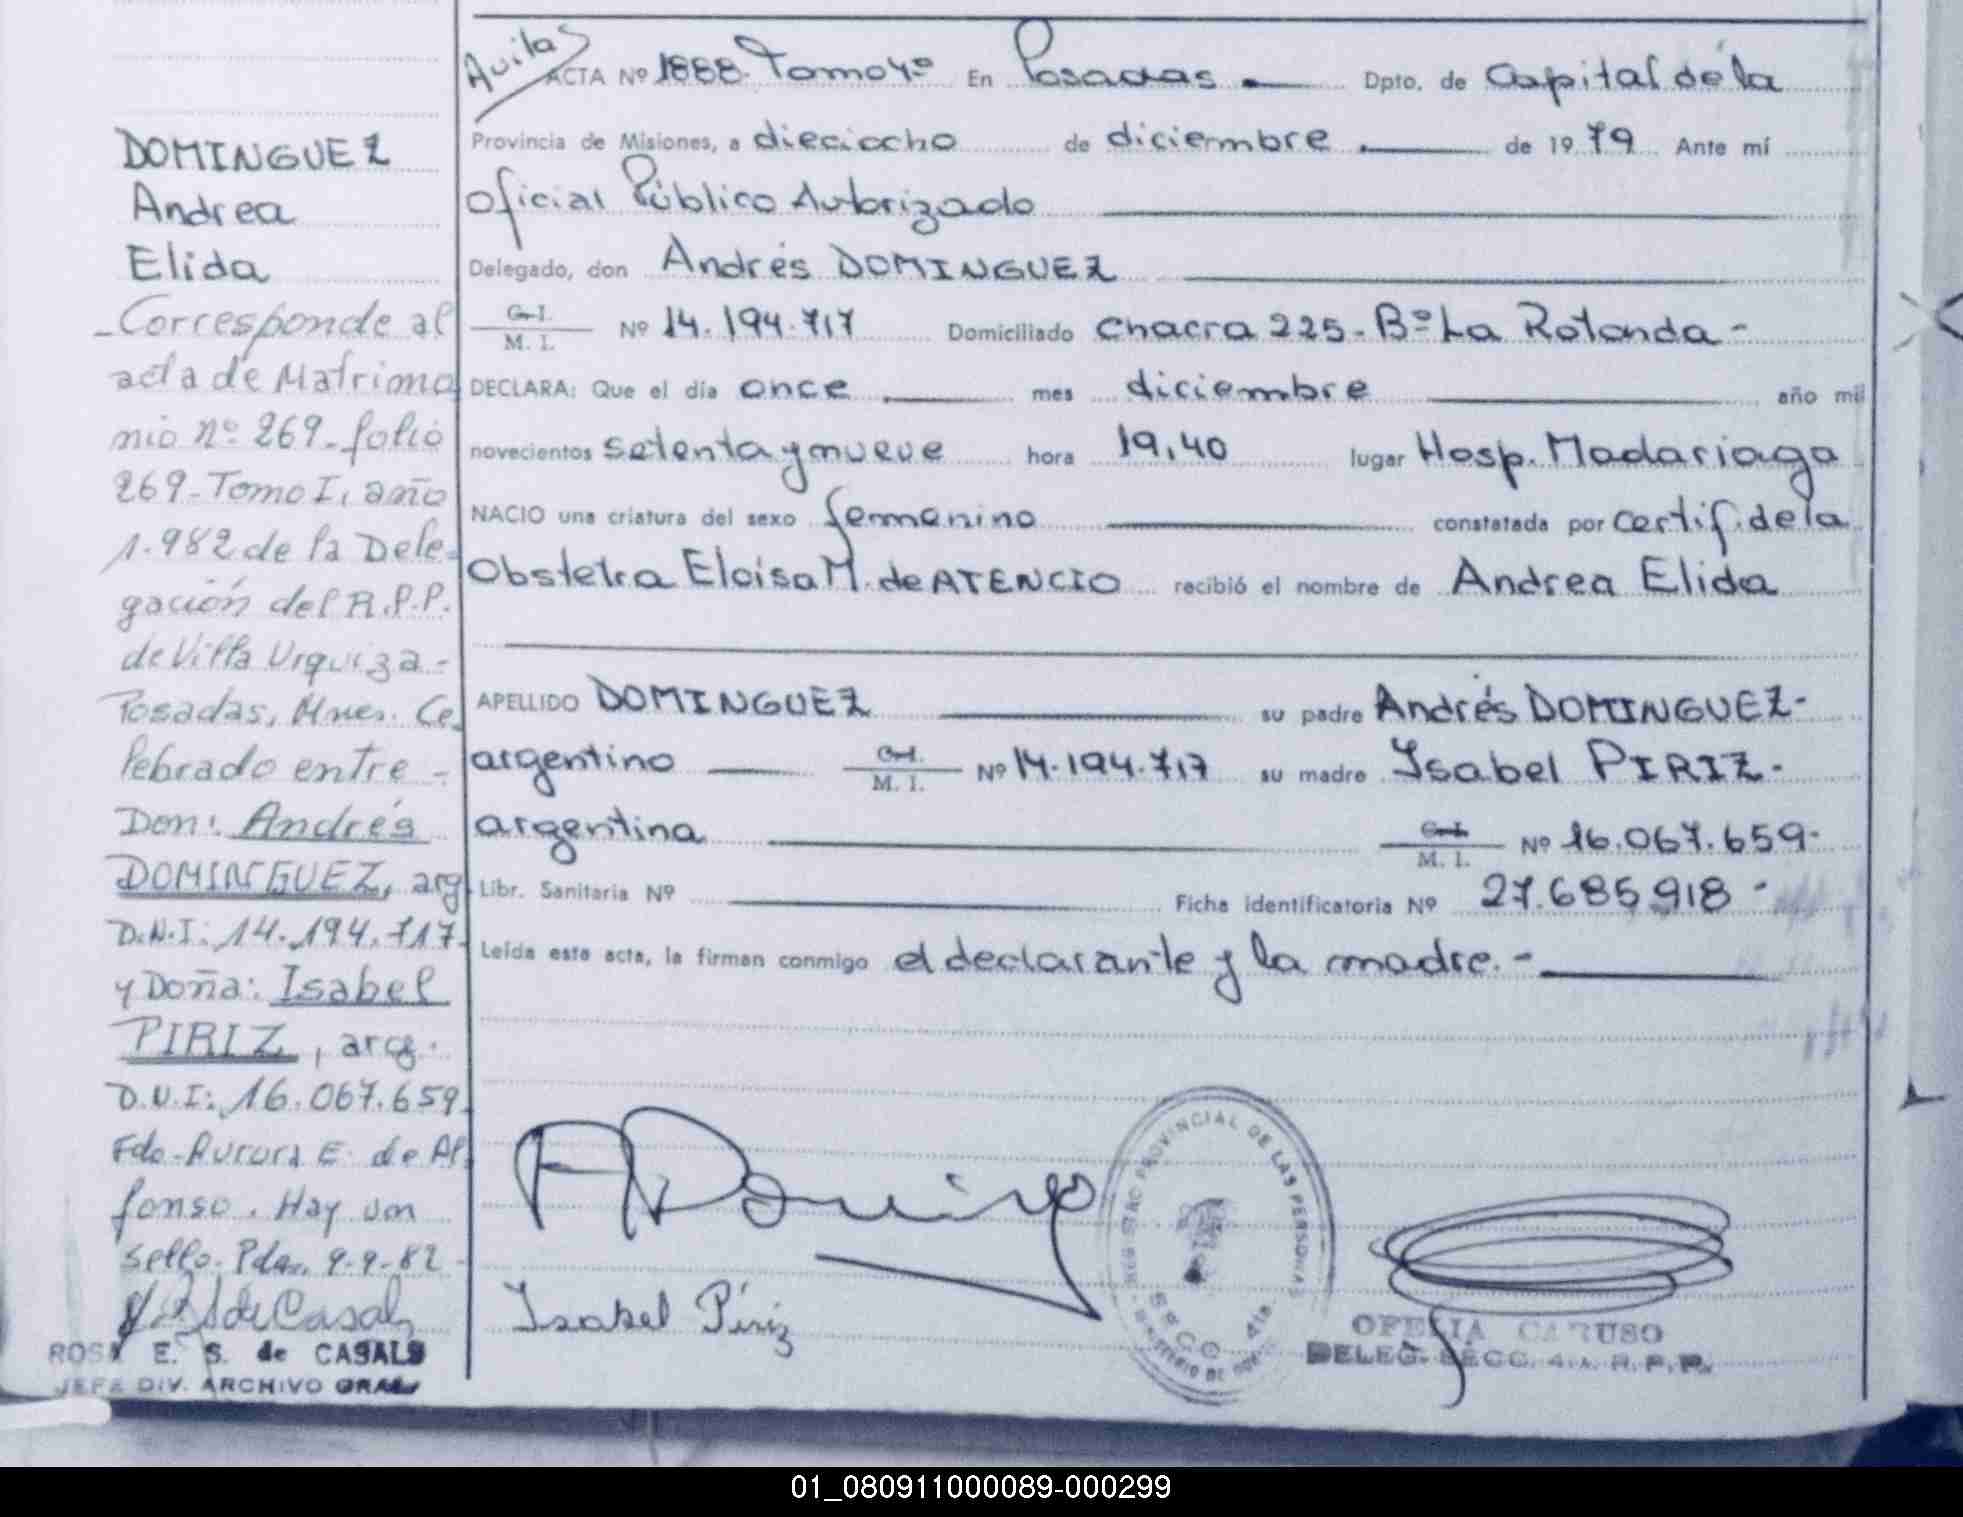 Avilas
ACTA Nº 1888. Tomo 4º En Posadas Dpto. de Capital de la
Provincia de Misiones, a dieciocho de diciembre de 1979 Ante mí
Oficial Público Autorizado
Delegado, don Andrés DOMINGUEZ
C.I. M. I. Nº 14.194.717 Domiciliado Chacra 225-Bº La Rotonda-
DECLARA: Que el día once mes diciembre año mil
novecientos setenta y nueve hora 19,40 lugar Hosp. Madariaga
NACIO una criatura del sexo femenino constatada por certif. de la
Obstetra Eloisa M. de ATENCIO recibió el nombre de Andrea Elida
APELLIDO DOMINGUEZ su padre Andrés DOMINGUEZ-
argentino C.I. M. I. Nº 14.194.717 su madre Isabel PIRIZ-
argentina C.I. M. I. Nº 16.067.659-
Libr. Sanitaria Nº Ficha identificatoria Nº 27.685.918-
Leída esta acta, la firman conmigo el declarante y la madre.-
Isabel Píriz
REGISTRO PROVINCIAL DE LAS PERSONAS
SECC. 4ta.
OFELIA CARUSO
DELEG. SECC. 4ta. R.P.P.
DOMINGUEZ
Andrea
Elida
-Corresponde al
acta de Matrimo
nio nº 269-folio
269-Tomo I, año
1.982 de la Dele-
gación del R.P.P.
de Villa Urquiza-
Posadas, Mnes. Ce
lebrado entre-
Don: Andrés
DOMINGUEZ, arg
D.N.I: 14.194.717-
y Doña: Isabel
PIRIZ, arg.
D.N.I: 16.067.659-
Fdo-Aurora E. de Al
fonso. Hay un
sello. Pdas, 9-9-82-
de Casals
ROSA E. S. de CASALS
JEFE DIV. ARCHIVO GRAL
01_080911000089-000299